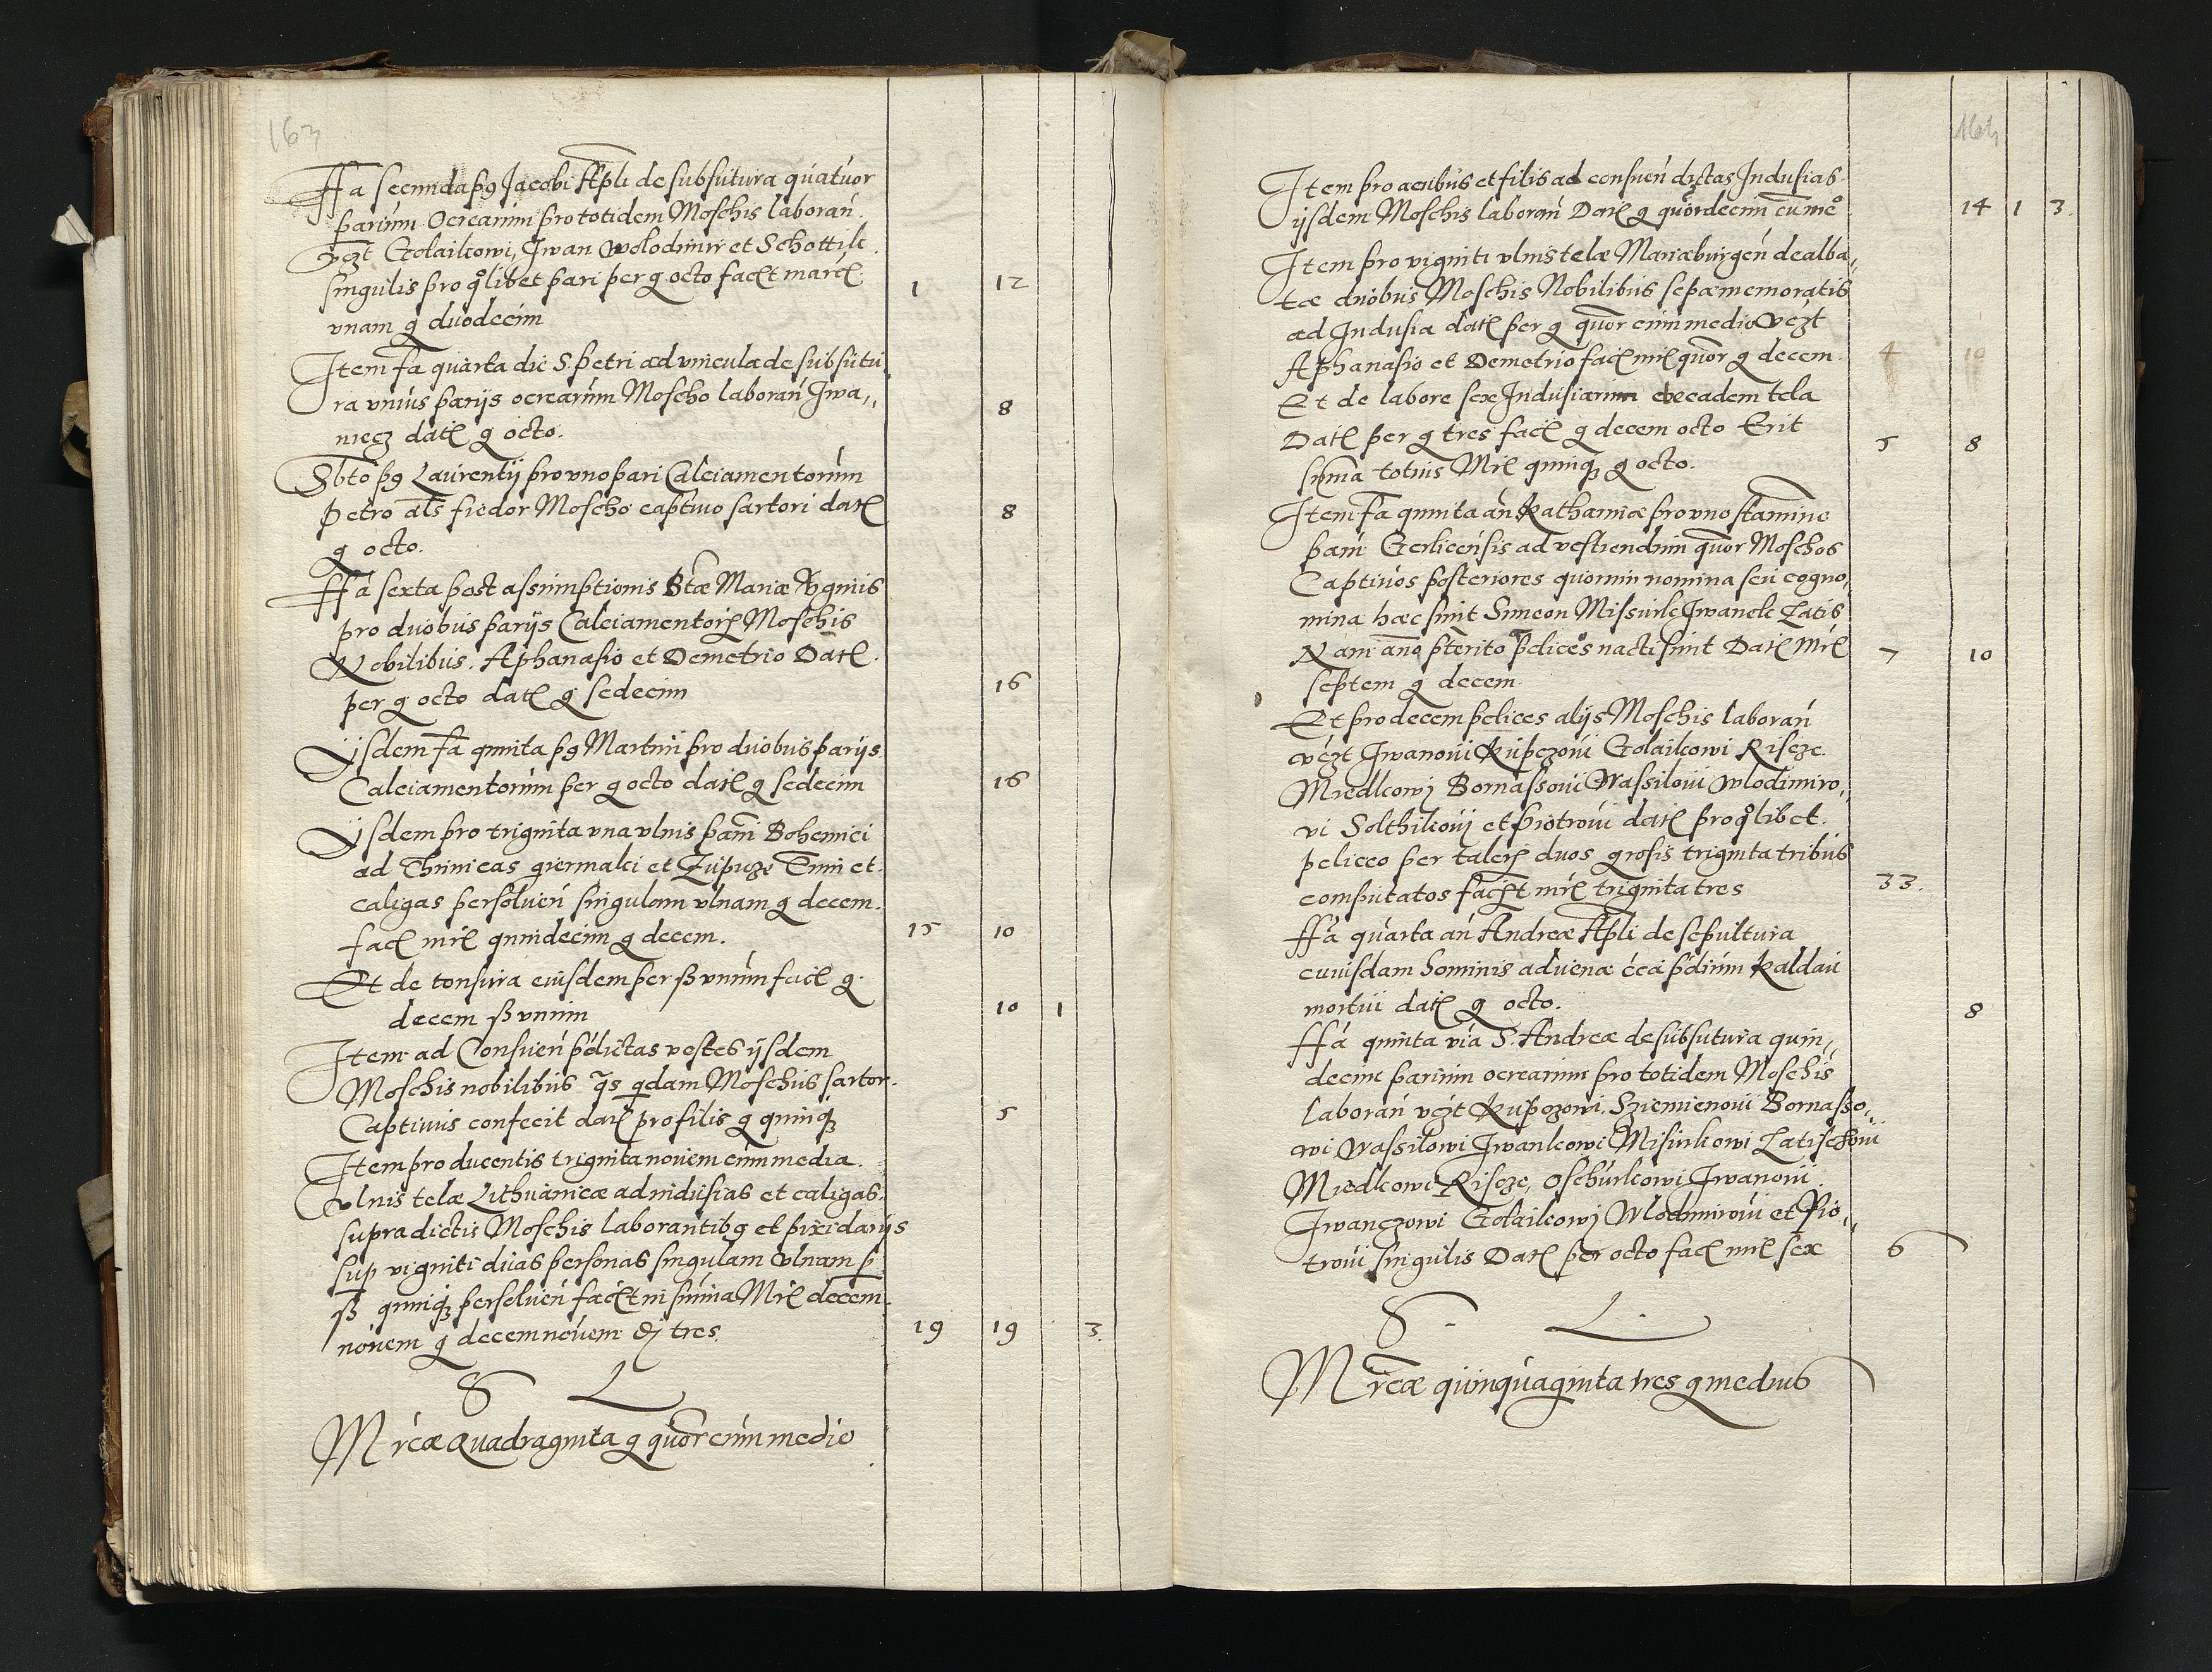 163
ffa secunda pꝰ Jacobi Apli de subsutura quatuor
parium Ocrearum pro totidem Moschis laboran̄
vczt Golailkowi, Jwan Wolodimir et Schottik
singulis pro qͦlibet pari per g octo faćt marć
1 12
vnam g duodecim
Item fa quarta die S. Petri ad vincula de subsutu„
ra vnius parijs ocrearum Moscho laboran̄ Jwa„
8
niecz dat g octo.
Sbto pꝰ Laurentij pro uno pari Calciamentorum
Petro als fiedor Moscho captiuo sartori dat
8
g octo.
ffa sexta post assumptionis Btæ Mariæ Vginis
pro duobus parijs Calciamentorꝫ Moschis
Nobilibus. Aphanasio et Demetrio Dat.
per g octo dat g sedecim
16
ijsdem fa quinta pꝰ Martini pro duobus parijs
Calciamentorum per g octo dat g sedecim
16
ijsdem pro triginta una vlnis pani Bohemici
ad Thunicas giermaki et Zupicze Tum et
caligas persoluen̄ singulam vlnam g decem.
fac mrc quindecim g decem.
15 10
Et de tonsura eiusdem per ß vnum fac g
decem ß vnum
10 1
Item ad Consuen̄ pdictas vestes ijsdem
Moschis nobilibus qs qdam Moschus sartor.
Captiuus confecit dat pro filis g quinqꝫ
5
Item pro ducentis triginta nouem cum media.
vlnis telæ Lithuanicæ ad indusias et caligas.
supradictis Moschis laborantibꝰ et pixidarijs
sup viginti duas personas singulam vlnam p
ß quinqꝫ persoluen̄ faćt in sum̄a Mrc decem
nouem g decem nouem đ tres.
19 19 3.
S L
Mrcæ Quadraginta g quor cum medio
164
Item pro acubus et filis ad consuen̄ dictas Indusias
ijsdem Moschis laboran̄ Dat g quordecim cum mͦ
14 1 3.
Item pro viginti vlnis telæ Mariæburgen̄ dealba„
tæ duobus Moschis Nobilibus sepæmemoratis
ad Indusia dat per g quor cum medio vczt
Aphanasio et Demetrio fac mrc quor g decem
4 10
Et de labore sex Indusiarum ex eadem tela
Dat per g tres fac g decem octo Erit
sum̄a totius Mrc quinqꝫ g octo.
5 8
Item fa quinta an̄ Katharinæ pro vno stamine
pani Gerlicensis ad vestiendum quor Moschos
Captiuos posteriores quorum nomina seu cogno„
mina hæc sunt Simeon Missurk Jwanek Latis
Nam an̄o pterito pelices nacti sunt Dat Mrc
7 10
septem g decem
Et pro decem pelices alijs Moschis laboran̄
vczt Jwanoui Kupczoui Golaikowi Risczc
Miedkowj Bornassoui Wassiloui Wlodimiro„
vi Solthikouj et Piotroui dat pro qͦlibet.
peliceo per talerꝫ duos grosis triginta tribus
computatos faćt mrc triginta tres
33.
ffa quarta an̄ Andreæ Apli de sepultura
cuiusdam hominis aduenæ ćca pdium Kaldau
mortui dat g octo.
8
ffa quinta via S. Andreæ de subsutura quin„
decim parium ocrearum pro totidem Moschis
laboran̄ vczt Kupczowi. Sziemienoui Bornasso„
wi Wassilowi Jwankowi Misurkowi Latischoui
Miedkowi Risczc, Oschurkowi Jwanoui
Jwanczowi Golaikowj Wlodimiroui et Pio„
troui singulis Dat per octo fac mrc sex
6
S. L.
Mrcæ quinquaginta tres g medius